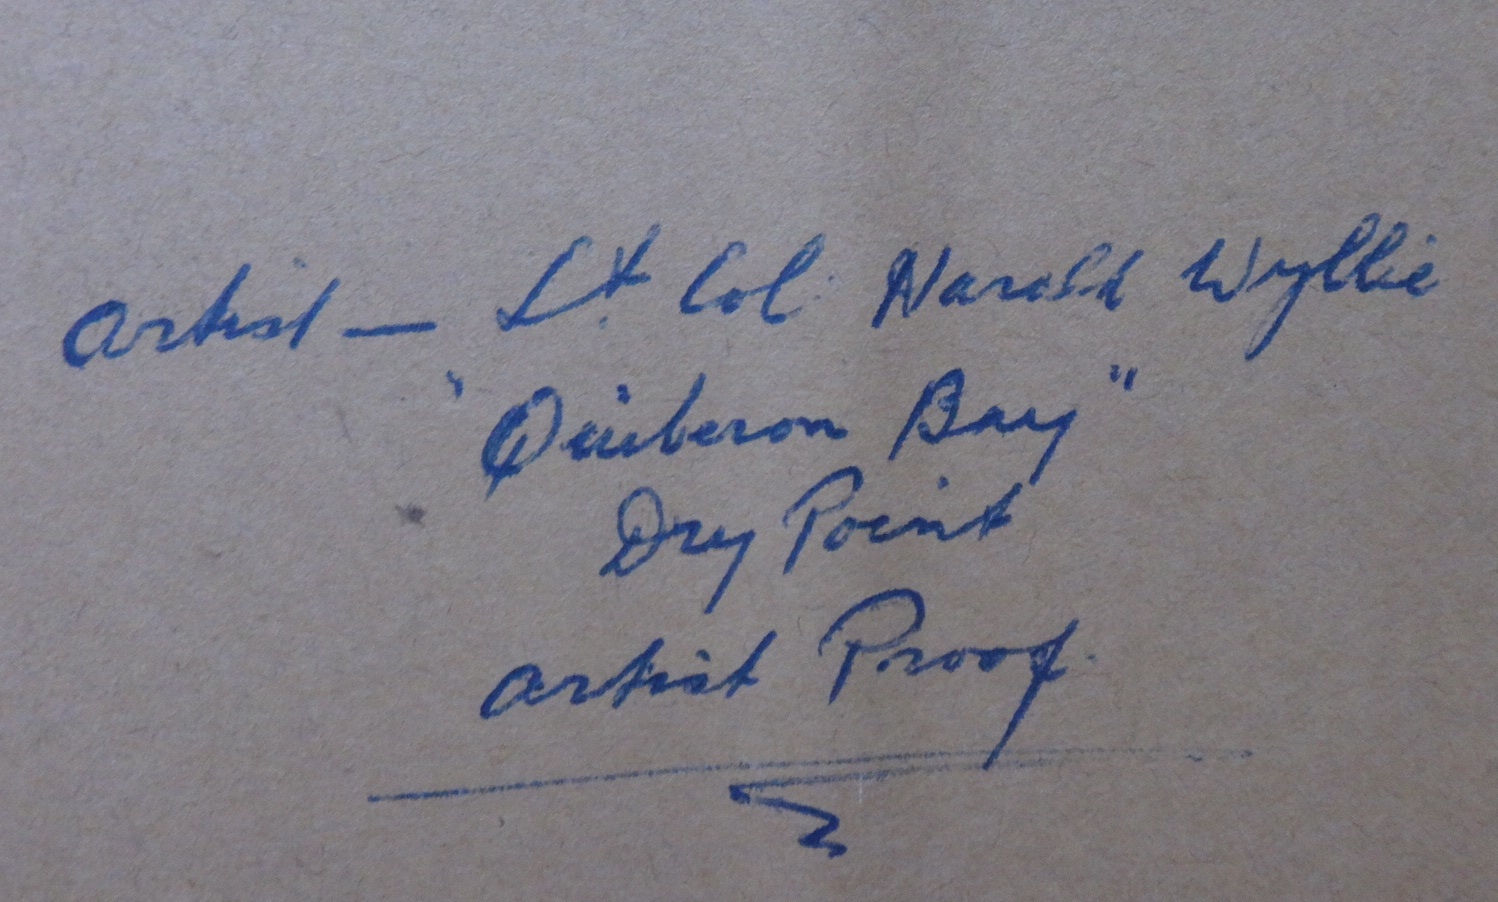 Artist — Lt. Col. Harold Wyllie
"Quiberon Bay"
Dry Point
Artist Proof.